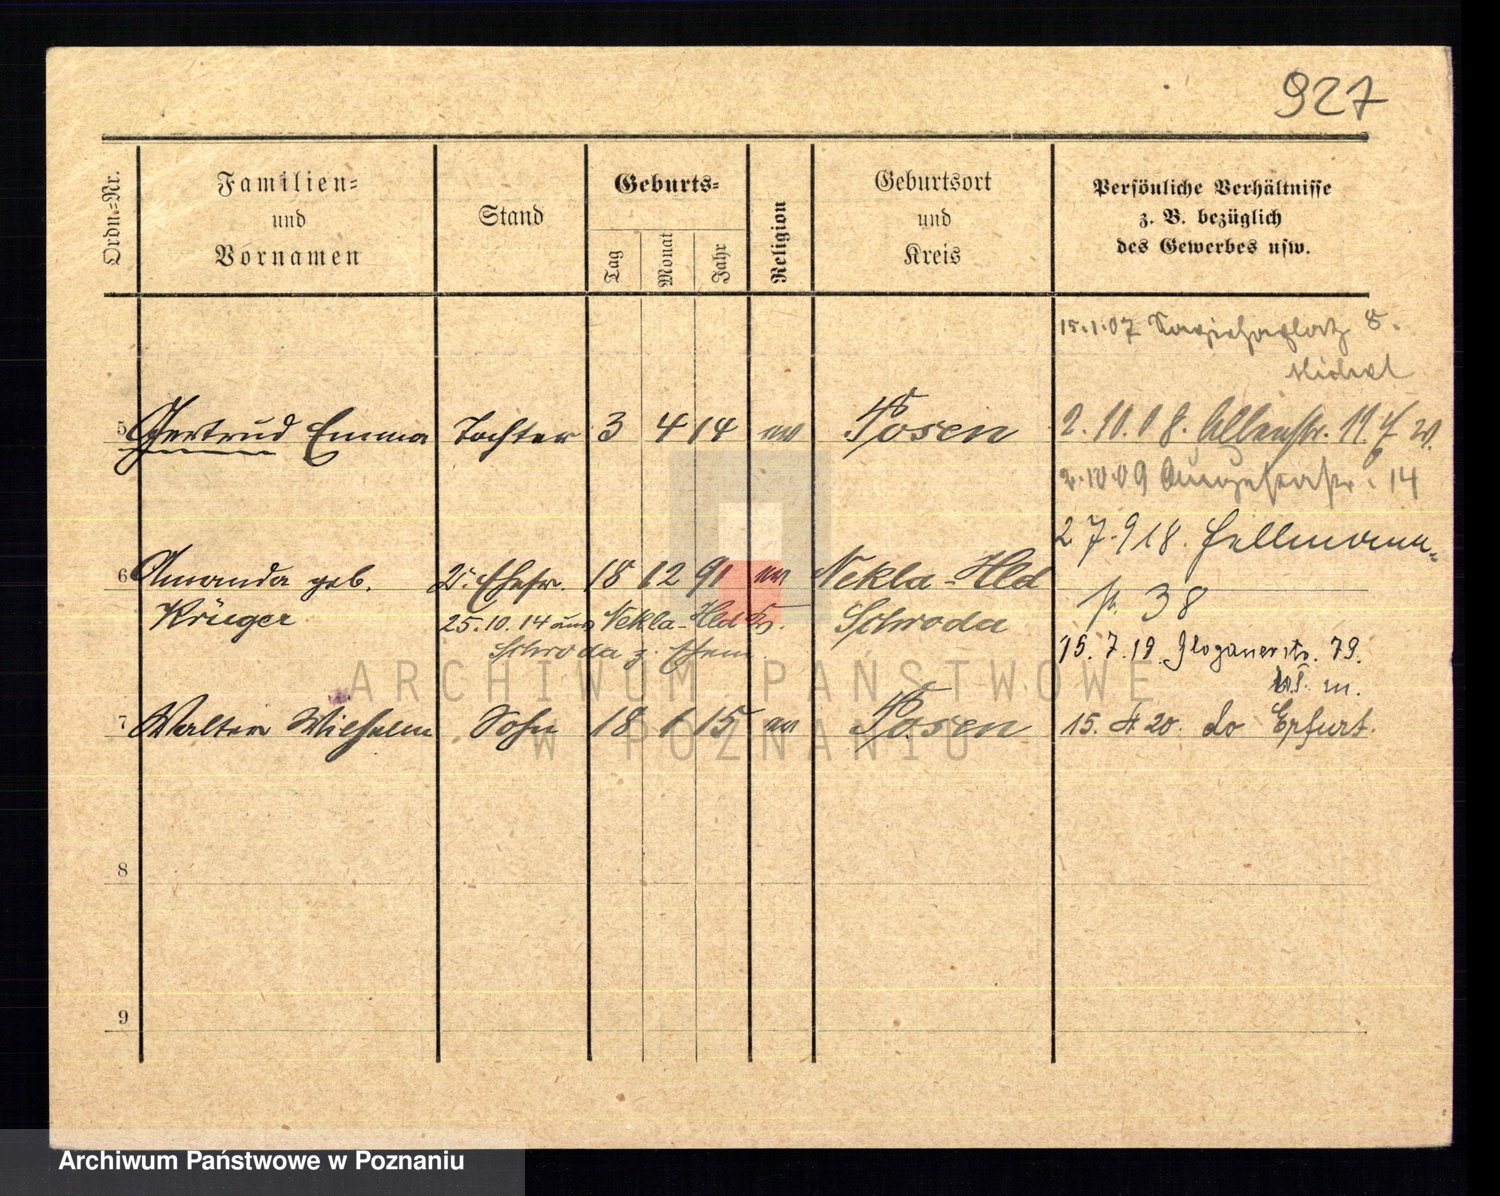 927
Ordn.=Nr.
Familien=
und
Vornamen
Stand
Geburts=
Tag
Monat
Jahr
Religion
Geburtsort
und
Kreis
Persönliche Verhältnisse
z. B. bezüglich
des Gewerbes usw.
15.1.07 8.
Michel
5 Gertrud Emma Tochter 3 4 14 ev Posen 2.10.08. 11.
2.10.09 14
27.9 18. Hellmann=
6 Amanda geb. 2. Ehefr. 18 12 91 ev Nekla-Hld
str. 38
Krüger 25.10.14 aus Nekla-Hld Schroda
Schroda z.
15.7.19 Glogauerstr. 79.
m.
7 Walter Wilhelm Sohn 18 1 15 ev Posen 15. 4 20. Erfurt.
8
9
ARCHIWUM PAŃSTWOWE
W POZNANIU
Archiwum Państwowe w Poznaniu